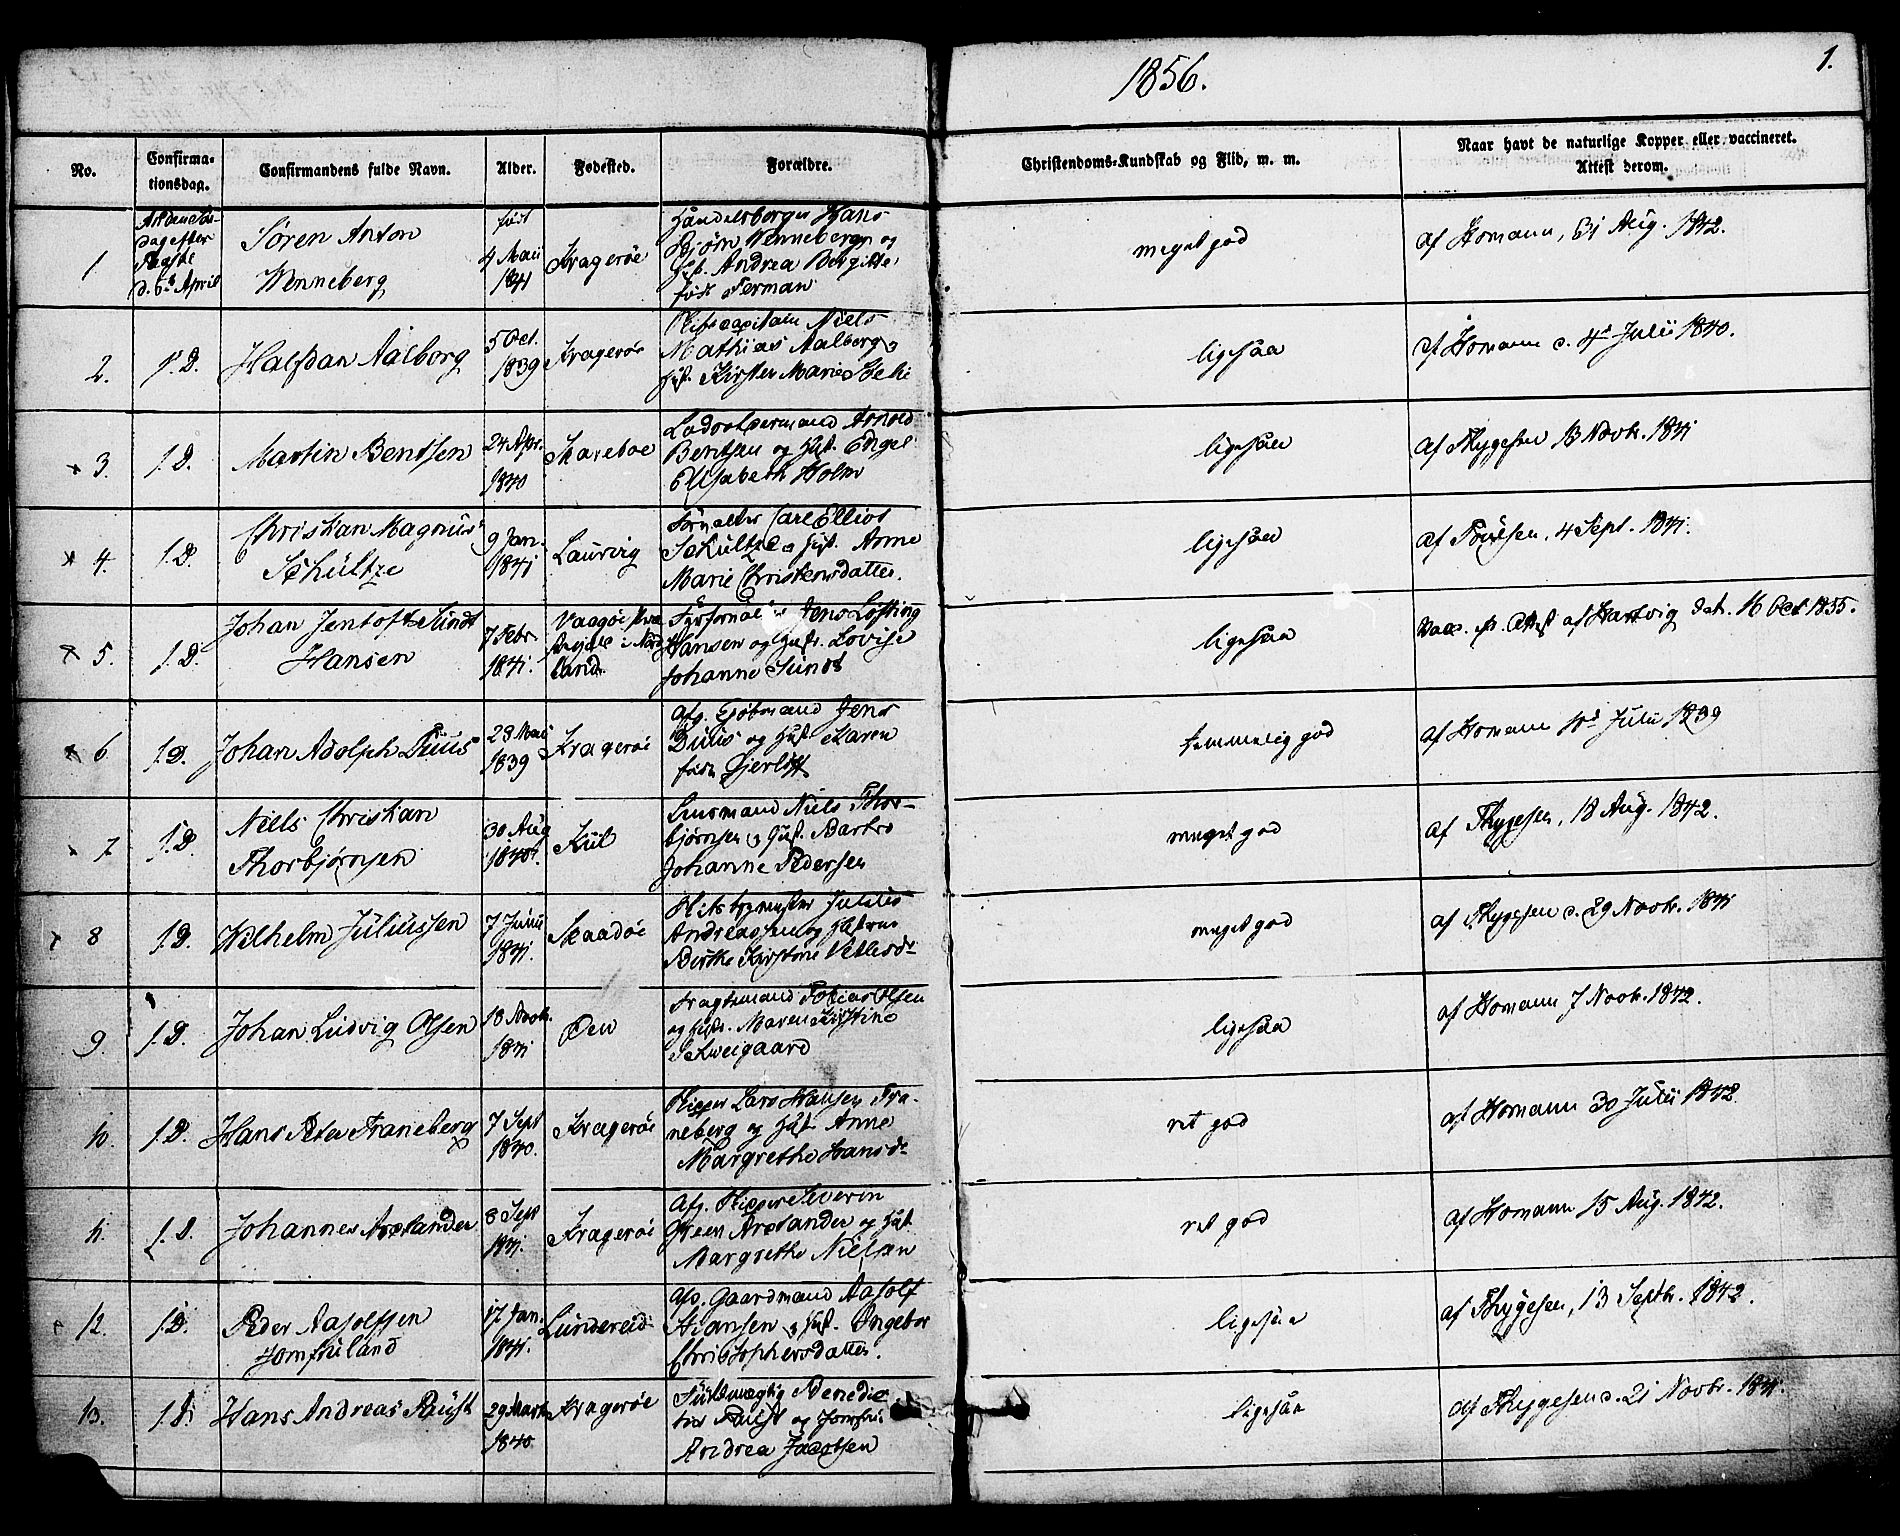 1856.
1.
No.
Confirma-
tionsdag.
Confirmandens fulde Navn.
Alder.
Fødested.
Forældre.
Christendoms-Kundskab og Flid, m. m.
Naar havt de naturlige Kopper eller vaccineret.
Attest derom.
1
dag efter
Paaske
d. 6te April
Søren Anton
Wenneberg
født
4 Maii
1841
Kragerøe
Handelsborger Hans
Bjørn Wenneberg og
Hust. Andrea Bergitte
født Ferman
meget god
af Homann, 31 Aug. 1842.
2.
1. D.
Halfdan Aalborg
5 Oct.
1839
Kragerøe
Skibscapitain Niels
Mathias Aalborg og
Hust. Kirsten Marie
ligesaa
af Homann d. 4de Julii 1840.
3.
1. D.
Martin Bentsen
24 Apr.
1840
Skareboe
Lodsoldermand Arnold
Bentsen og Hust. Engel
Elisabeth Holm
ligesaa
af Thygesen 13 Novbr. 1841
4.
1. D.
Christian Magnus
Schültze
9 Jan.
1841
Laurvig
Forvalter Carl Elliot
Schultze og Hust. Anne
Marie Christensdatter.
ligesaa
af 4 Sept. 1841.
5.
1. D.
Johan Jentoft Sundt
Hansen
7 Febr.
1841.
Vaagøe
i Nord
land
Jens Løfting
Hansen og Hustr. Lovise
Johanne Sundt
ligesaa
Vacc. Attest af Hartvig dat. 16 Oct 1855.
6
1. D.
Johan Adolph Duus
23 Mai
1839
Kragerøe
Afg. Kjøbmand Jens
Duus og Hust. Karen
født Gjerløff
temmelig god
af Homann Julii 1839
7.
1. D.
Niels Christian
Thorbjørnsen
30 Aug
1840.
Kiil
Huusmand Niels Thor-
bjørnsen og Hust. Barbro
Johanne Pedersen
meget god
af Thygesen, 18 Aug. 1842.
8
1. D.
Wilhelm Juliussen
7 Junii
1841.
Skaadøe
Skibstømmer Julius
Andreassen og Hustrue
Birthe Kirstine Vetlesdr
meget god
af Thygesen d. 29 Novbr. 1841
9.
1. D.
Johan Ludvig Olsen
18 Novbr.
1841
Øen
Fragtemand Tobias Olsen
og Hustr. Maren Kirstine
Schweigaard
ligesaa
af Homann 7 Novbr. 1842.
10.
1. D.
Hans Peter Franeberg
7 Sept
1840.
Kragerøe
Skipper Lars Hansen Fra-
neberg og Hust. Anne
Margrethe Hansdr
ret god
af Homann 30 Julii 1842.
11.
1. D.
Johannes Arelander
8 Sept
1841.
Kragerøe
Afg. Skipper Severin
Green Arelander og Hust.
Margrethe Nielsen
ret god
af Homann 15 Aug. 1842.
12.
1. D.
Peder Aasolfsen
Jomfruland
17 Jan.
1841.
Lundereid
Afg. Gaardmand Aasolf
Stiansen og Hust. Ingebor
Christophersdatter.
ligesaa
af Thygesen, 13 Septbr. 1842.
13.
1. D.
Hans Andreas Rüst
29 Marts
1840
Kragerøe
Fuldmægtig Benedic
tus Rust og Jomfru
Andrea Jacobsen
ligesaa
af Thygesen d. 21 Novbr. 1841.